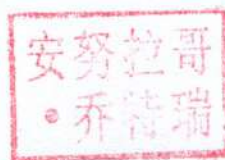 安努拉哥
·乔蒂瑞